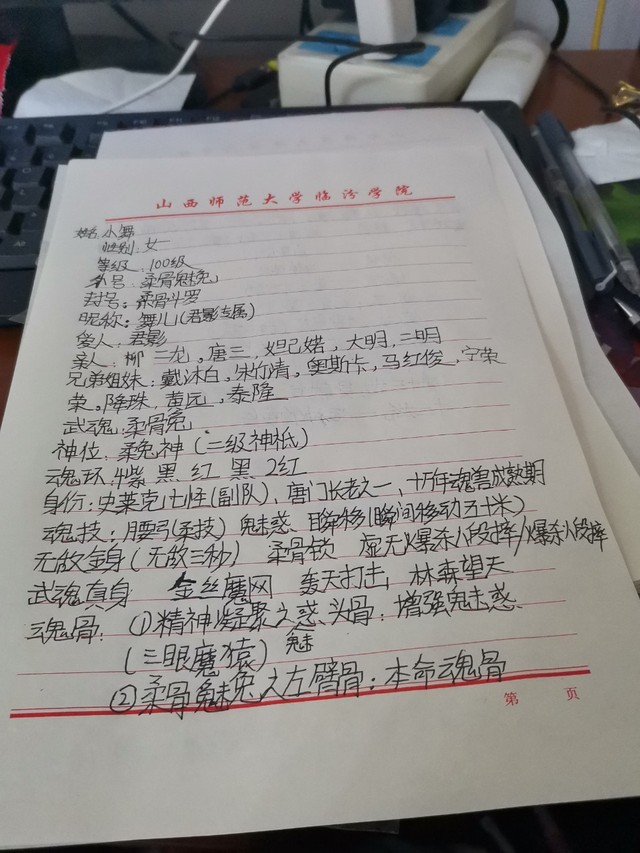 山西师范大学临汾学院
姓名:小舞
性别:女
等级:100级
外号:柔骨魅兔
封号:柔骨斗罗
昵称:舞儿(君影专属)
爱人:君影
亲人:柳二龙,唐三,妲己婼,大明,二明
兄弟姐妹:戴沐白,朱竹清,奥斯卡,马红俊,宁荣
荣。降珠,黄远,泰隆
武魂:柔骨兔
神位:柔兔神(二级神祇)
魂环:4紫 黑 红 黑 2红
身份:史莱克七怪(副队),唐门长老之一,十万年魂兽成熟期
魂技:腰弓(柔技) 魅惑 瞬移(瞬间移动五十米)
无敌金身(无敌三秒) 柔骨锁 虚无爆杀八段摔/爆杀八段摔
武魂真身 金丝魔网 轰天打击,林森望天
魂骨:①精神凝聚之惑头骨:增强魅惑
(三眼魔猿) 魅
②柔骨魅兔之左臂骨:本命魂骨
第 页